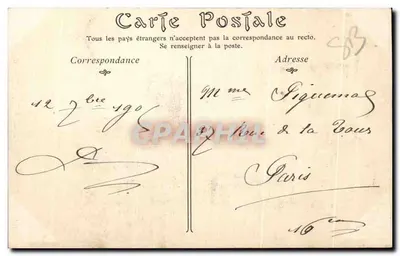 Carte Postale
Tous les pays étrangers n'acceptent pas la correspondance au recto.
Se renseigner à la poste.
83
Correspondance
Adresse
12 7bre 1905
Mme Piquemal
87 Rue de la Tour
Paris
16e
CPAPHIL